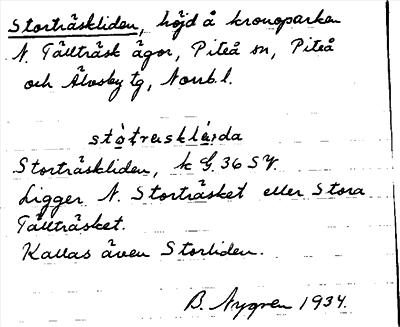 Storträskliden, höjd å kronoparken
N. Tällträsk ägor, Piteå sn, Piteå
och Älvsby tg, Norrb. l.
stò̩trasklı̩da
Storträskliden, k G. 36 SV.
Ligger N. Storträsket eller Stora
Tällträsket.
Kallas även Storliden.
B. Nygren 1934.